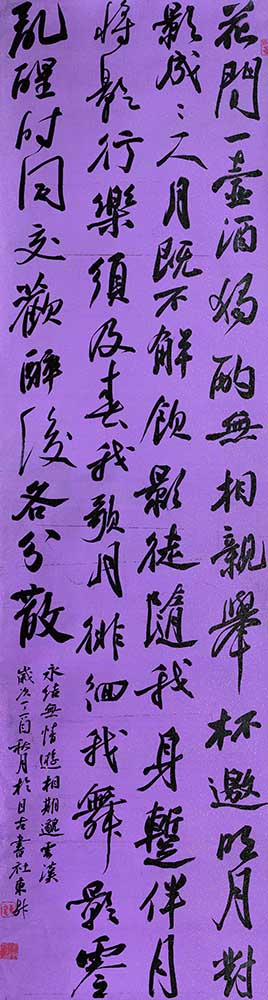 花間一壺酒獨酌無相親舉杯邀明月對
影成三人月既不解飲影徒隨我身蹔伴月
將影行樂須及春我歌月徘徊我舞影零
亂醒时同交歡醉後各分散
永结無情遊相期邈雲漢
歲次丁酉秋月於日古書社東升